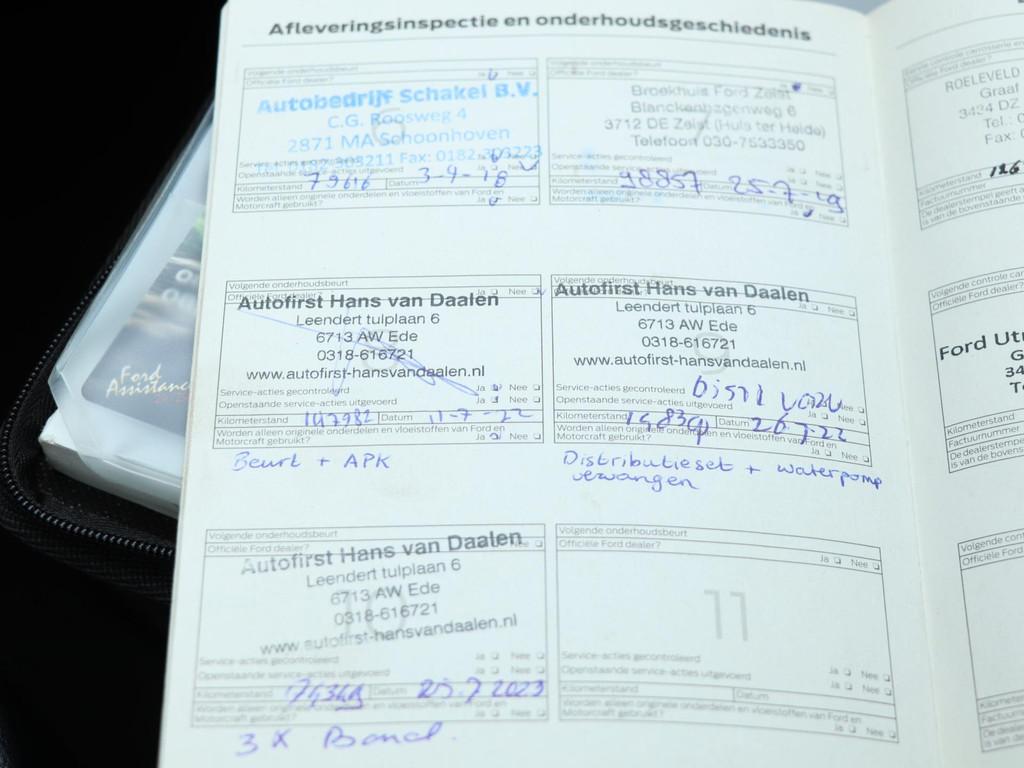 Afleveringsinspectie en onderhoudsgeschiedenis
Volgende onderhoudsbeurt
Officiële Ford dealer? Ja Nee
Autobedrijf Schakel B.V.
C.G. Roosweg 4
2871 MA Schoonhoven
0182 303211 Fax: 0182 303223
Service-acties gecontroleerd
Openstaande service-acties uitgevoerd
Kilometerstand 79616 Datum 3-4-18
Worden alleen originele onderdelen en vloeistoffen van Ford en
Motorcraft gebruikt? Ja Nee
Volgende onderhoudsbeurt
Officiële Ford dealer?
Broekhuis Ford Zeist
Blanckenhagenweg 6
3712 DE Zeist (Huis ter Heide)
Telefoon 030-7533350
Service-acties gecontroleerd
Openstaande service-acties uitgevoerd
Kilometerstand 98857 Datum 25-7-19
Worden alleen originele onderdelen en vloeistoffen van Ford en
Motorcraft gebruikt? Ja Nee
Volgende onderhoudsbeurt
Officiële Ford dealer? Ja Nee
Autofirst Hans van Daalen
Leendert tulplaan 6
6713 AW Ede
0318-616721
www.autofirst-hansvandaalen.nl
Service-acties gecontroleerd Ja Nee
Openstaande service-acties uitgevoerd Ja Nee
Kilometerstand 147982 Datum 11-7-22
Worden alleen originele onderdelen en vloeistoffen van Ford en
Motorcraft gebruikt? Ja Nee
Beurt + APK
Volgende onderhoudsbeurt
Officiële Ford dealer? Ja Nee
Autofirst Hans van Daalen
Leendert tulplaan 6
6713 AW Ede
0318-616721
www.autofirst-hansvandaalen.nl
9
Service-acties gecontroleerd
Openstaande service-acties uitgevoerd Ja Nee
Kilometerstand Datum 26-7-22
Worden alleen originele onderdelen en vloeistoffen van Ford en
Motorcraft gebruikt? Ja Nee
Distributieset + waterpomp
vervangen
Volgende onderhoudsbeurt
Officiële Ford dealer?
Autofirst Hans van Daalen
Leendert tulplaan 6
6713 AW Ede
0318-616721
www.autofirst-hansvandaalen.nl
10
Service-acties gecontroleerd Ja Nee
Openstaande service-acties uitgevoerd Ja Nee
Kilometerstand Datum 25.7 2023
Worden alleen originele onderdelen en vloeistoffen van Ford en
Motorcraft gebruikt? Ja Nee
3 x Band.
Volgende onderhoudsbeurt
Officiële Ford dealer? Ja Nee
11
Service-acties gecontroleerd Ja Nee
Openstaande service-acties uitgevoerd Ja Nee
Kilometerstand Datum
Worden alleen originele onderdelen en vloeistoffen van Ford en
Motorcraft gebruikt? Ja Nee
ROELEVELD
Graaf
3434 DZ
Tel.:
Fax:
Kilometerstand 126
Factuurnummer
De dealerstempel geeft
is van de bovenstaande
Volgende controle
Officiële Ford
Ford Utr
Kilometerstand
Factuurnummer
De dealerstem
is van de bovens
Volgende cont
Officiële Ford
Kilometerstand
Factuurnum
De deale
is van d
Ford
Assistance